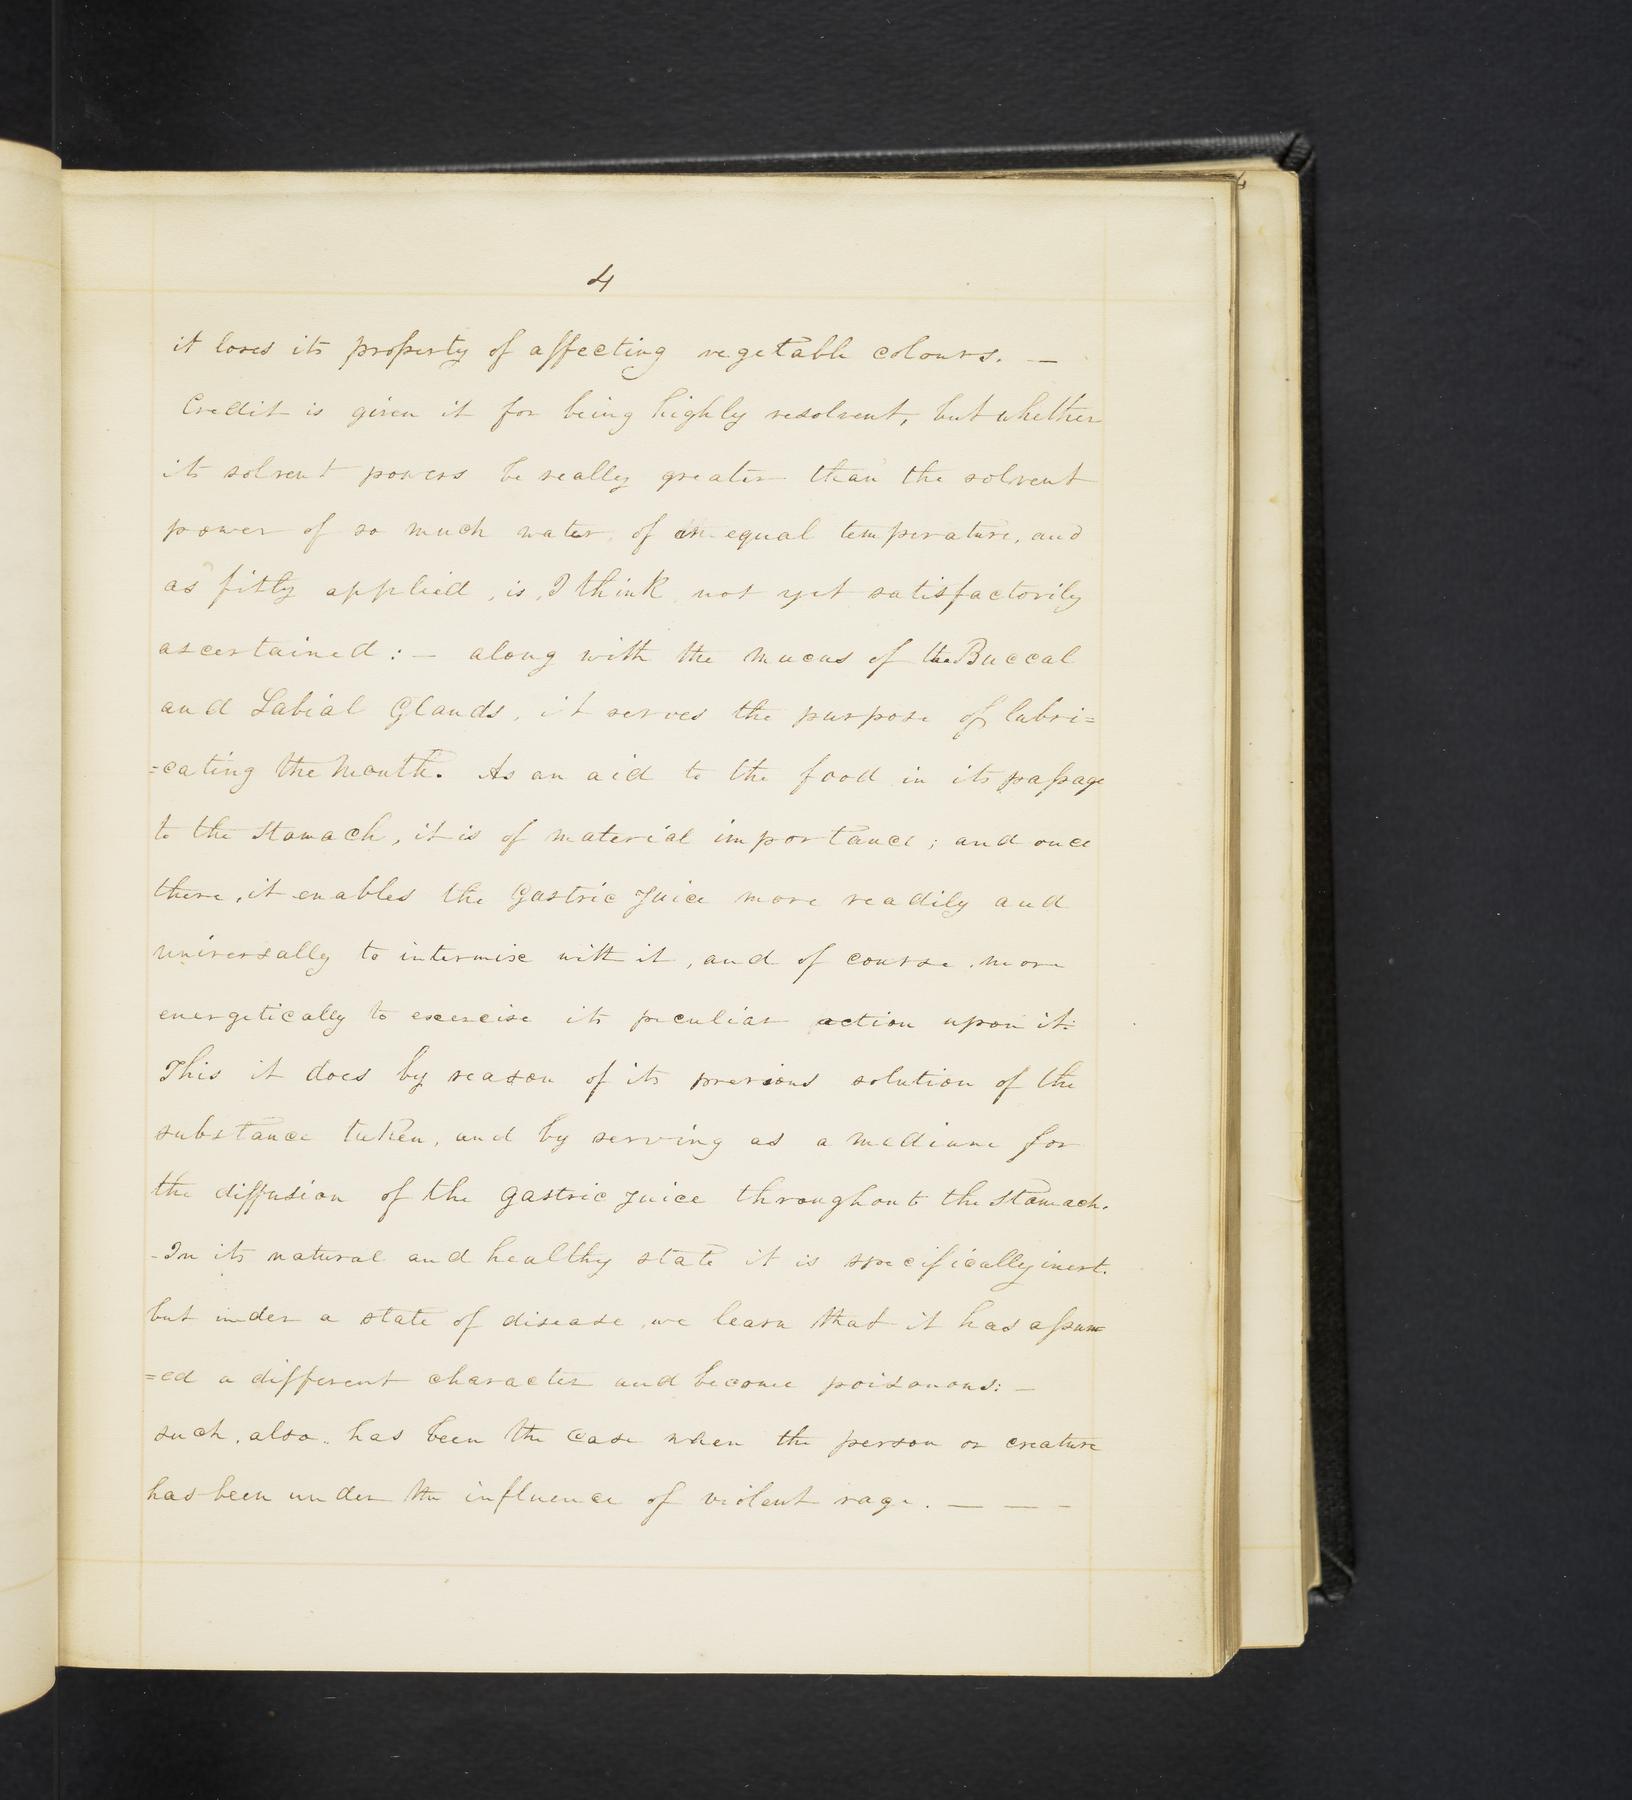 4
it loses its property of affecting vegetable colours. —
Credit is given it for being highly resolvent, but whether
its solvent powers be really greater than the solvent
power of so much water, of an equal temperature, and
as fitly applied, is, I think, not yet satisfactorily
ascertained: — along with the mucus of the Buccal
and Labial Glands, it serves the purpose of lubri=
=cating the mouth. As an aid to the food in its passage
to the stomach, it is of material importance; and once
there, it enables the Gastric Juice more readily and
universally to intermix with it, and of course, more
energetically to exercise its peculiar action upon it.
This it does by reason of its previous solution of the
substance taken, and by serving as a medium for
the diffusion of the Gastric Juice throughout the stomach.
- In its natural and healthy state it is specifically inert.
but under a state of disease, we learn that it has assum=
=ed a different character and become poisonous: —
such, also, has been the case when the person or creature
has been under the influence of violent rage. — — —